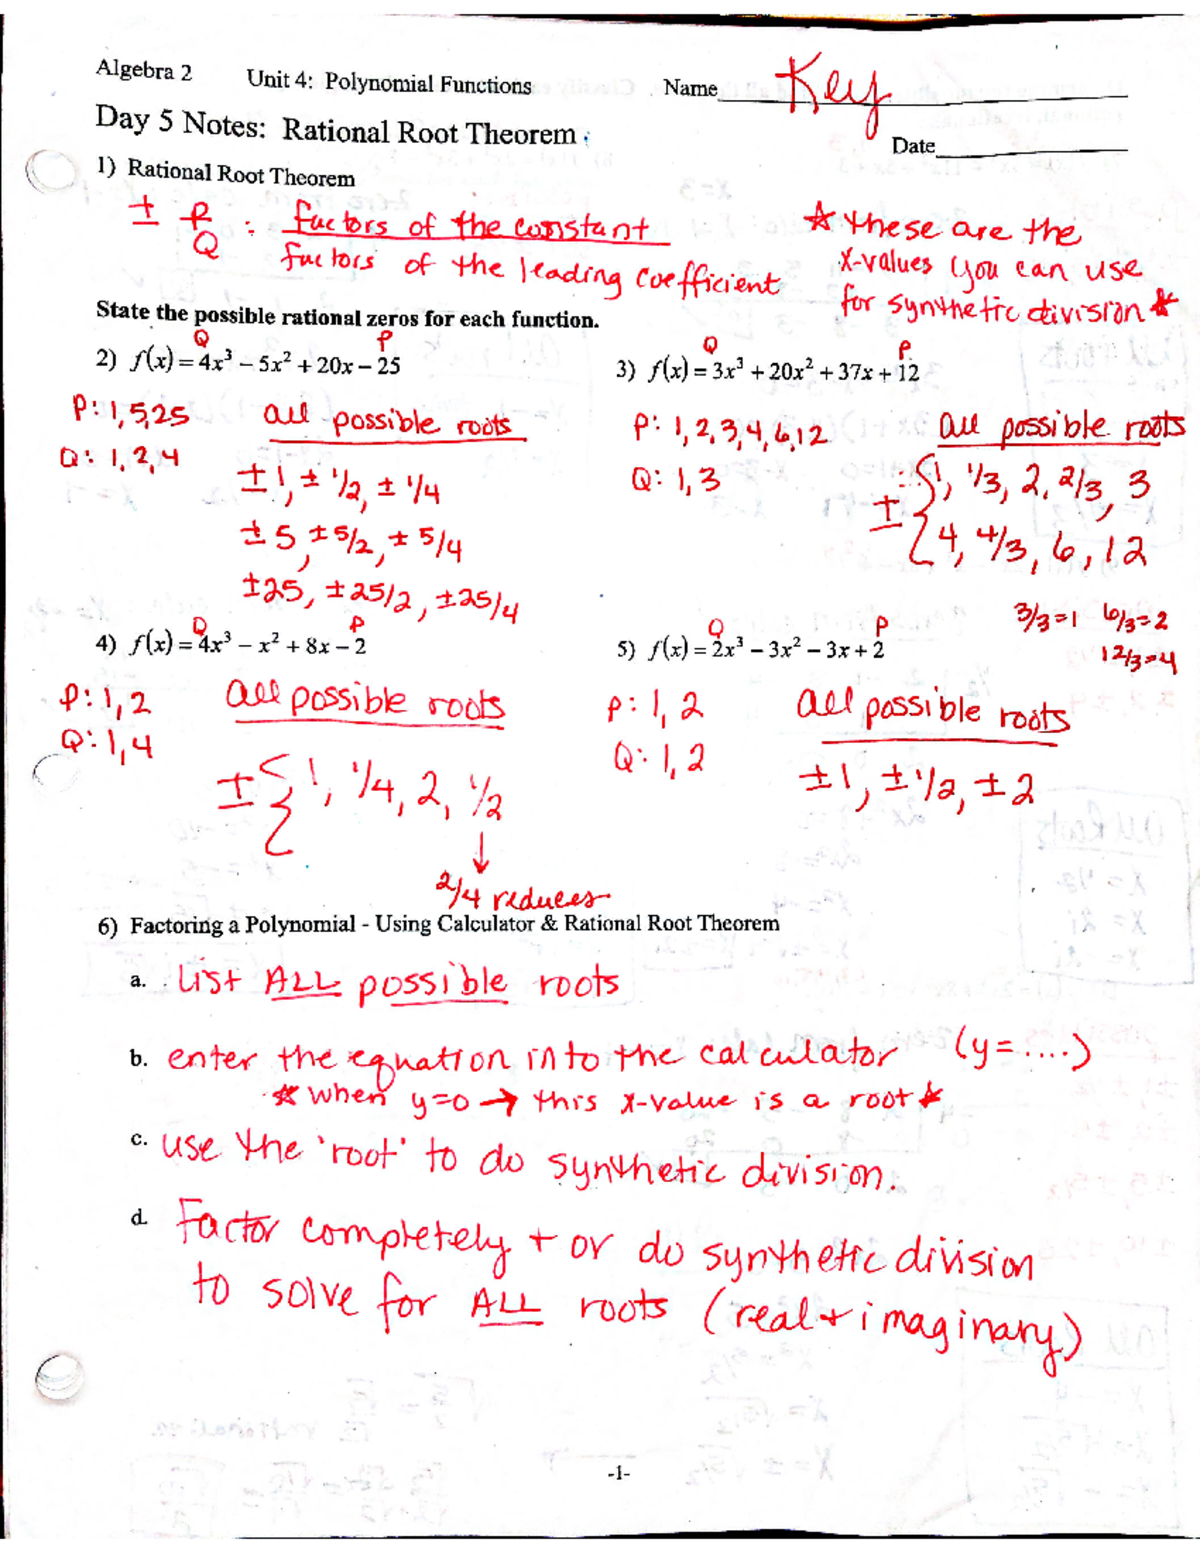 Algebra 2 Unit 4: Polynomial Functions Name Key
Day 5 Notes: Rational Root Theorem Date
1) Rational Root Theorem
± P/Q : factors of the constant / factors of the leading coefficient
★ these are the
x-values you can use
for synthetic division ★
State the possible rational zeros for each function.
Q P
2) f(x) = 4x³ – 5x² + 20x – 25
P: 1, 5, 25 all possible roots
Q: 1, 2, 4
±1, ± 1/2, ± 1/4
± 5, ± 5/2, ± 5/4
±25, ± 25/2, ±25/4
Q P
3) f(x) = 3x³ + 20x² + 37x + 12
P: 1, 2, 3, 4, 6, 12 all possible roots
Q: 1, 3
± { 1, 1/3, 2, 2/3, 3
4, 4/3, 6, 12
3/3=1 6/3=2
12/3=4
Q P
4) f(x) = 4x³ – x² + 8x – 2
P: 1, 2 all possible roots
Q: 1, 4
± { 1, 1/4, 2, 1/2
↓
2/4 reduces
Q P
5) f(x) = 2x³ – 3x² – 3x + 2
P: 1, 2 all possible roots
Q: 1, 2
±1, ± 1/2, ± 2
6) Factoring a Polynomial - Using Calculator & Rational Root Theorem
a. List ALL possible roots
b. enter the equation into the calculator (y = ....)
★ when y=0 → this x-value is a root ★
c. use the 'root' to do synthetic division.
d. Factor completely + or do synthetic division
to solve for ALL roots (real + imaginary)
-1-